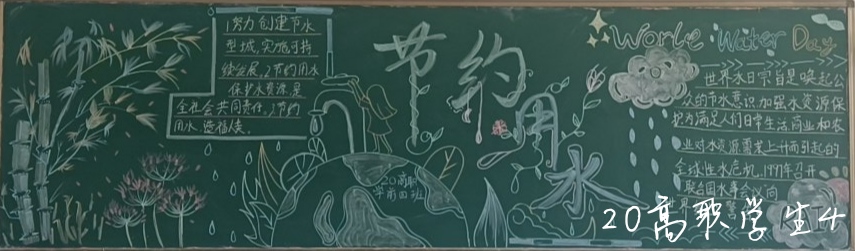 1努力创建节水
型城,实施可持
续发展,2节约用水
保护水资源,是
全社会共同责任,3节约
用水 造福人类.
节约用水
20高职
学前四班
World Water Day
世界水日宗旨是唤起公
众的节水意识加强水资源保
护为满足人们日常生活商业和农
业对水资源需求上升而引起的
全球性水危机,1977年召开
联合国水事会议向
20高职学生4